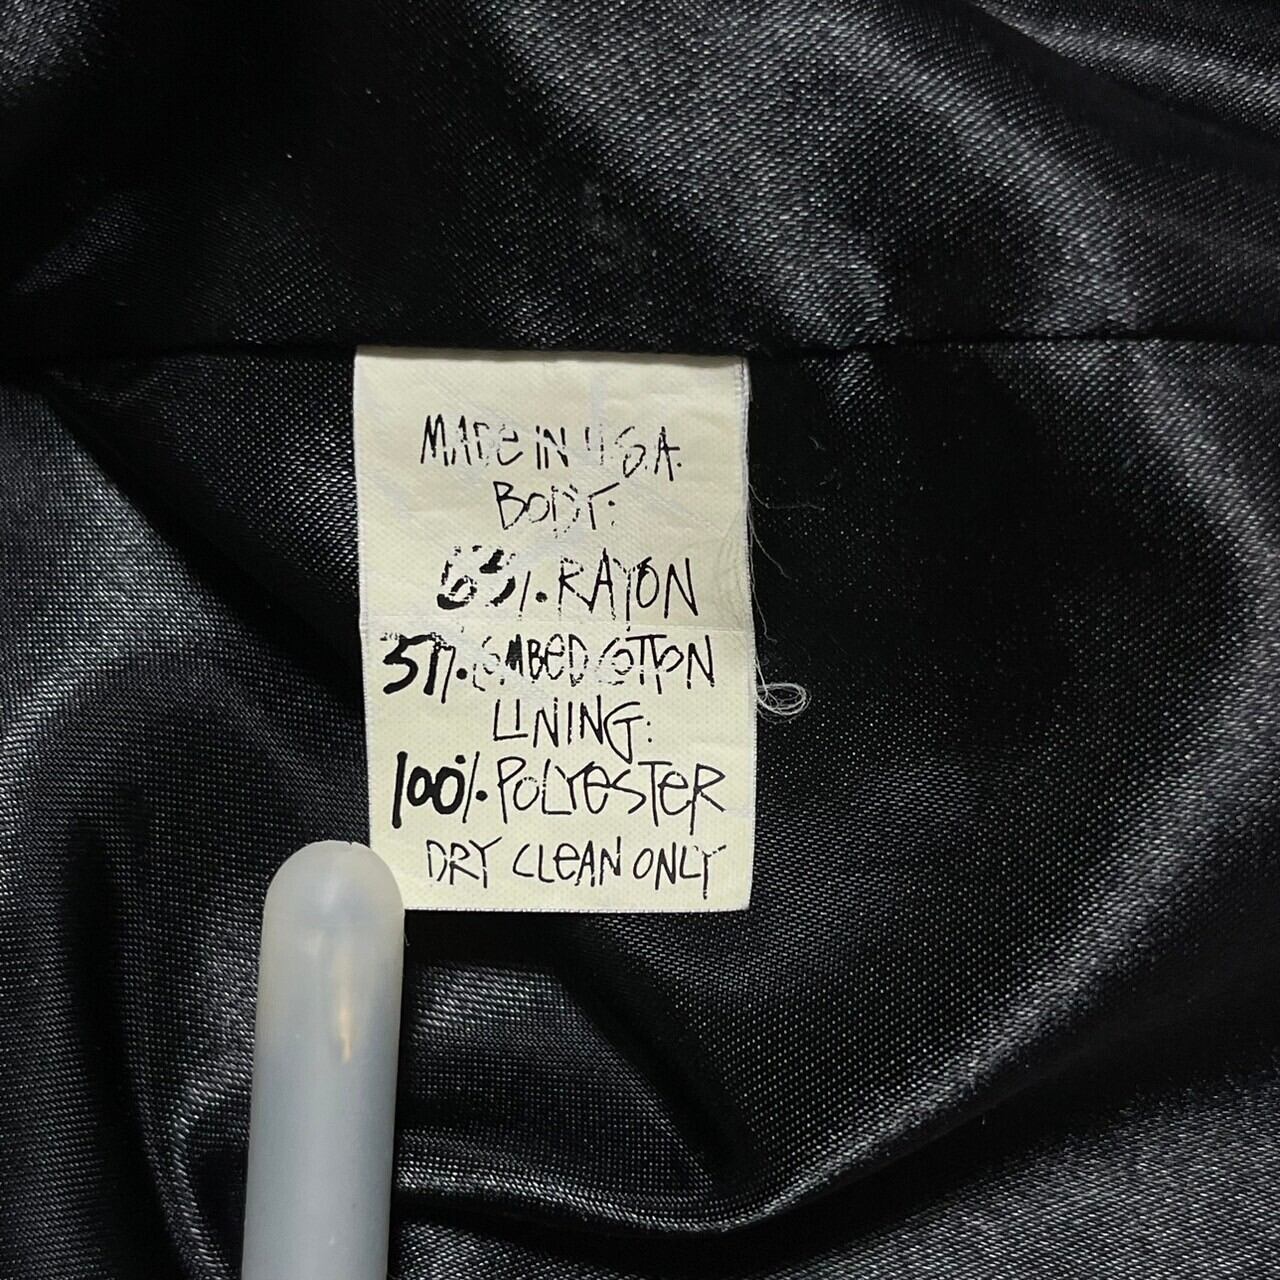 MADE IN U.S.A.
BODY:
% RAYON
% COMBED COTTON
LINING:
100% POLYESTER
DRY CLEAN ONLY